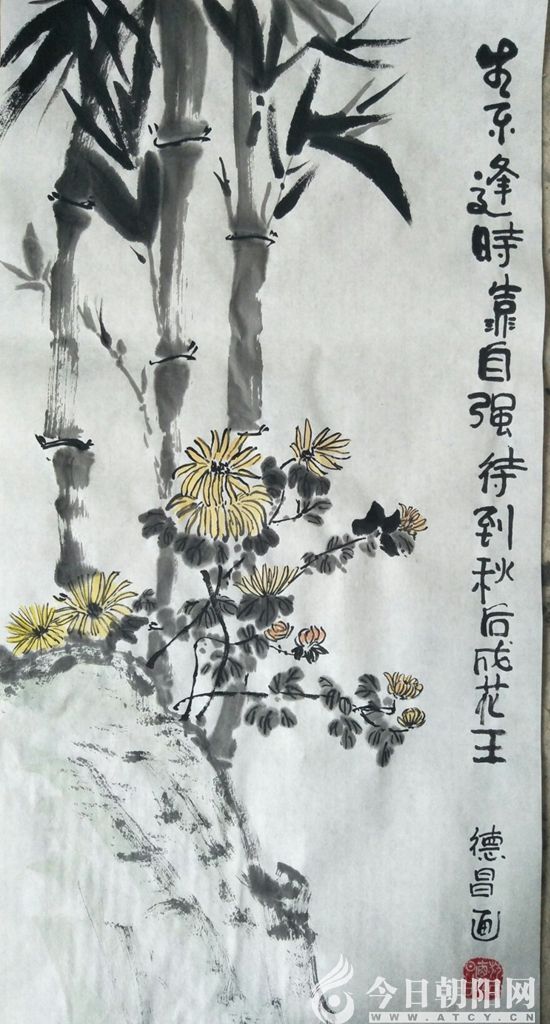 生不逢時靠自强待到秋后成花王
德昌画
今日朝阳网
WWW.ATCY.CN